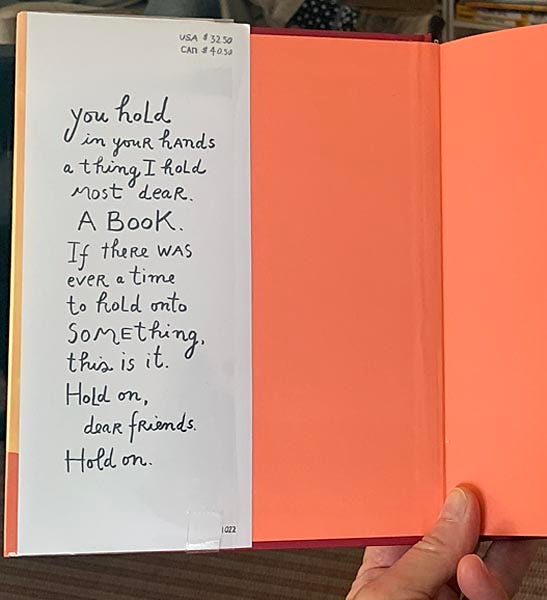 USA $32.50
CAN $40.50
you hold
in your hands
a thing I hold
most dear.
A Book.
If there was
ever a time
to hold onto
SOMEthing,
this is it.
Hold on,
dear friends.
Hold on.
1022